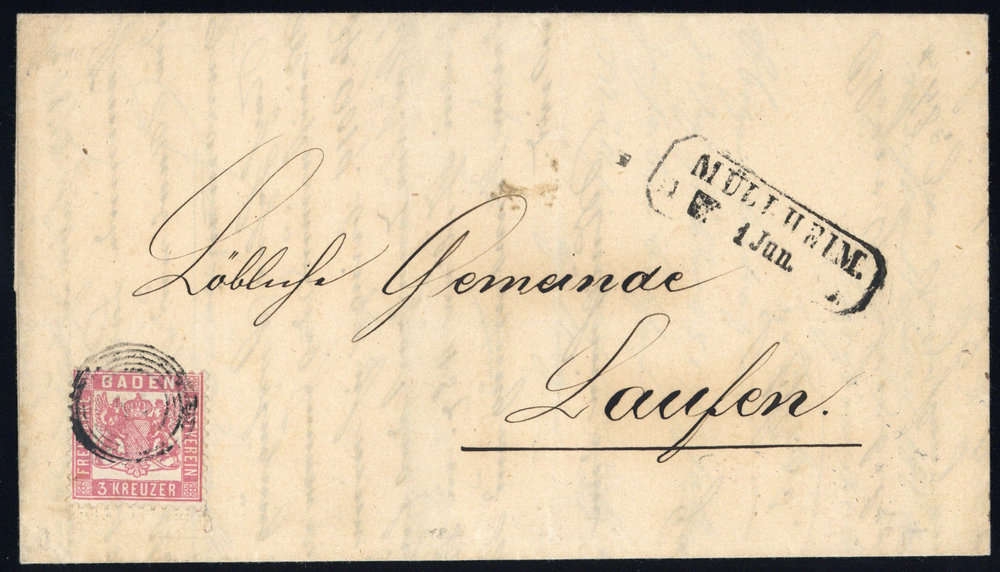 MÜLLHEIM.
1 Jun.
Löbliche Gemeinde
Laufen.
BADEN
FREI
VEREIN
3 KREUZER